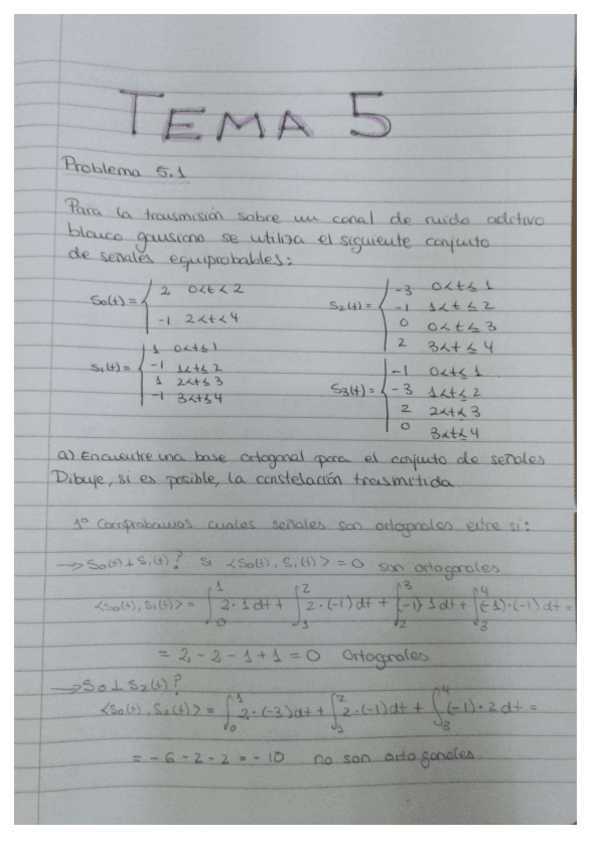 TEMA 5
Problema 5.1
Para la trasmisión sobre un canal de ruido aditivo
blanco gausiano se utiliza el siguiente conjunto
de señales equiprobables:
S₀(t) = { 2 0<t<2
-1 2<t<4
S₂(t) = { -3 0<t≤1
-1 1<t≤2
0 0<t≤3
2 3<t≤4
S₁(t) = { 1 0<t≤1
-1 1<t≤2
1 2<t≤3
-1 3<t≤4
S₃(t) = { -1 0<t≤1
-3 1<t≤2
2 2<t<3
0 3<t≤4
a) Encuentre una base ortogonal para el conjunto de señales
Dibuje, si es posible, la constelación trasmitida
1º Comprobamos cuales señales son ortogonales entre si:
→ S₀(t) ⊥ S₁(t)? Si <S₀(t), S₁(t)> = 0 son ortogonales
<S₀(t), S₁(t)> = ∫₀¹ 2·1dt + ∫₁² 2·(-1)dt + ∫₂³ (-1)·1dt + ∫₃⁴ (-1)·(-1)dt =
= 2 - 2 - 1 + 1 = 0 Ortogonales
→ S₀ ⊥ S₂(t)?
<S₀(t), S₂(t)> = ∫₀¹ 2·(-3)dt + ∫₂² 2·(-1)dt + ∫₃⁴ (-1)·2dt =
= -6 -2 -2 = -10 no son ortogonales